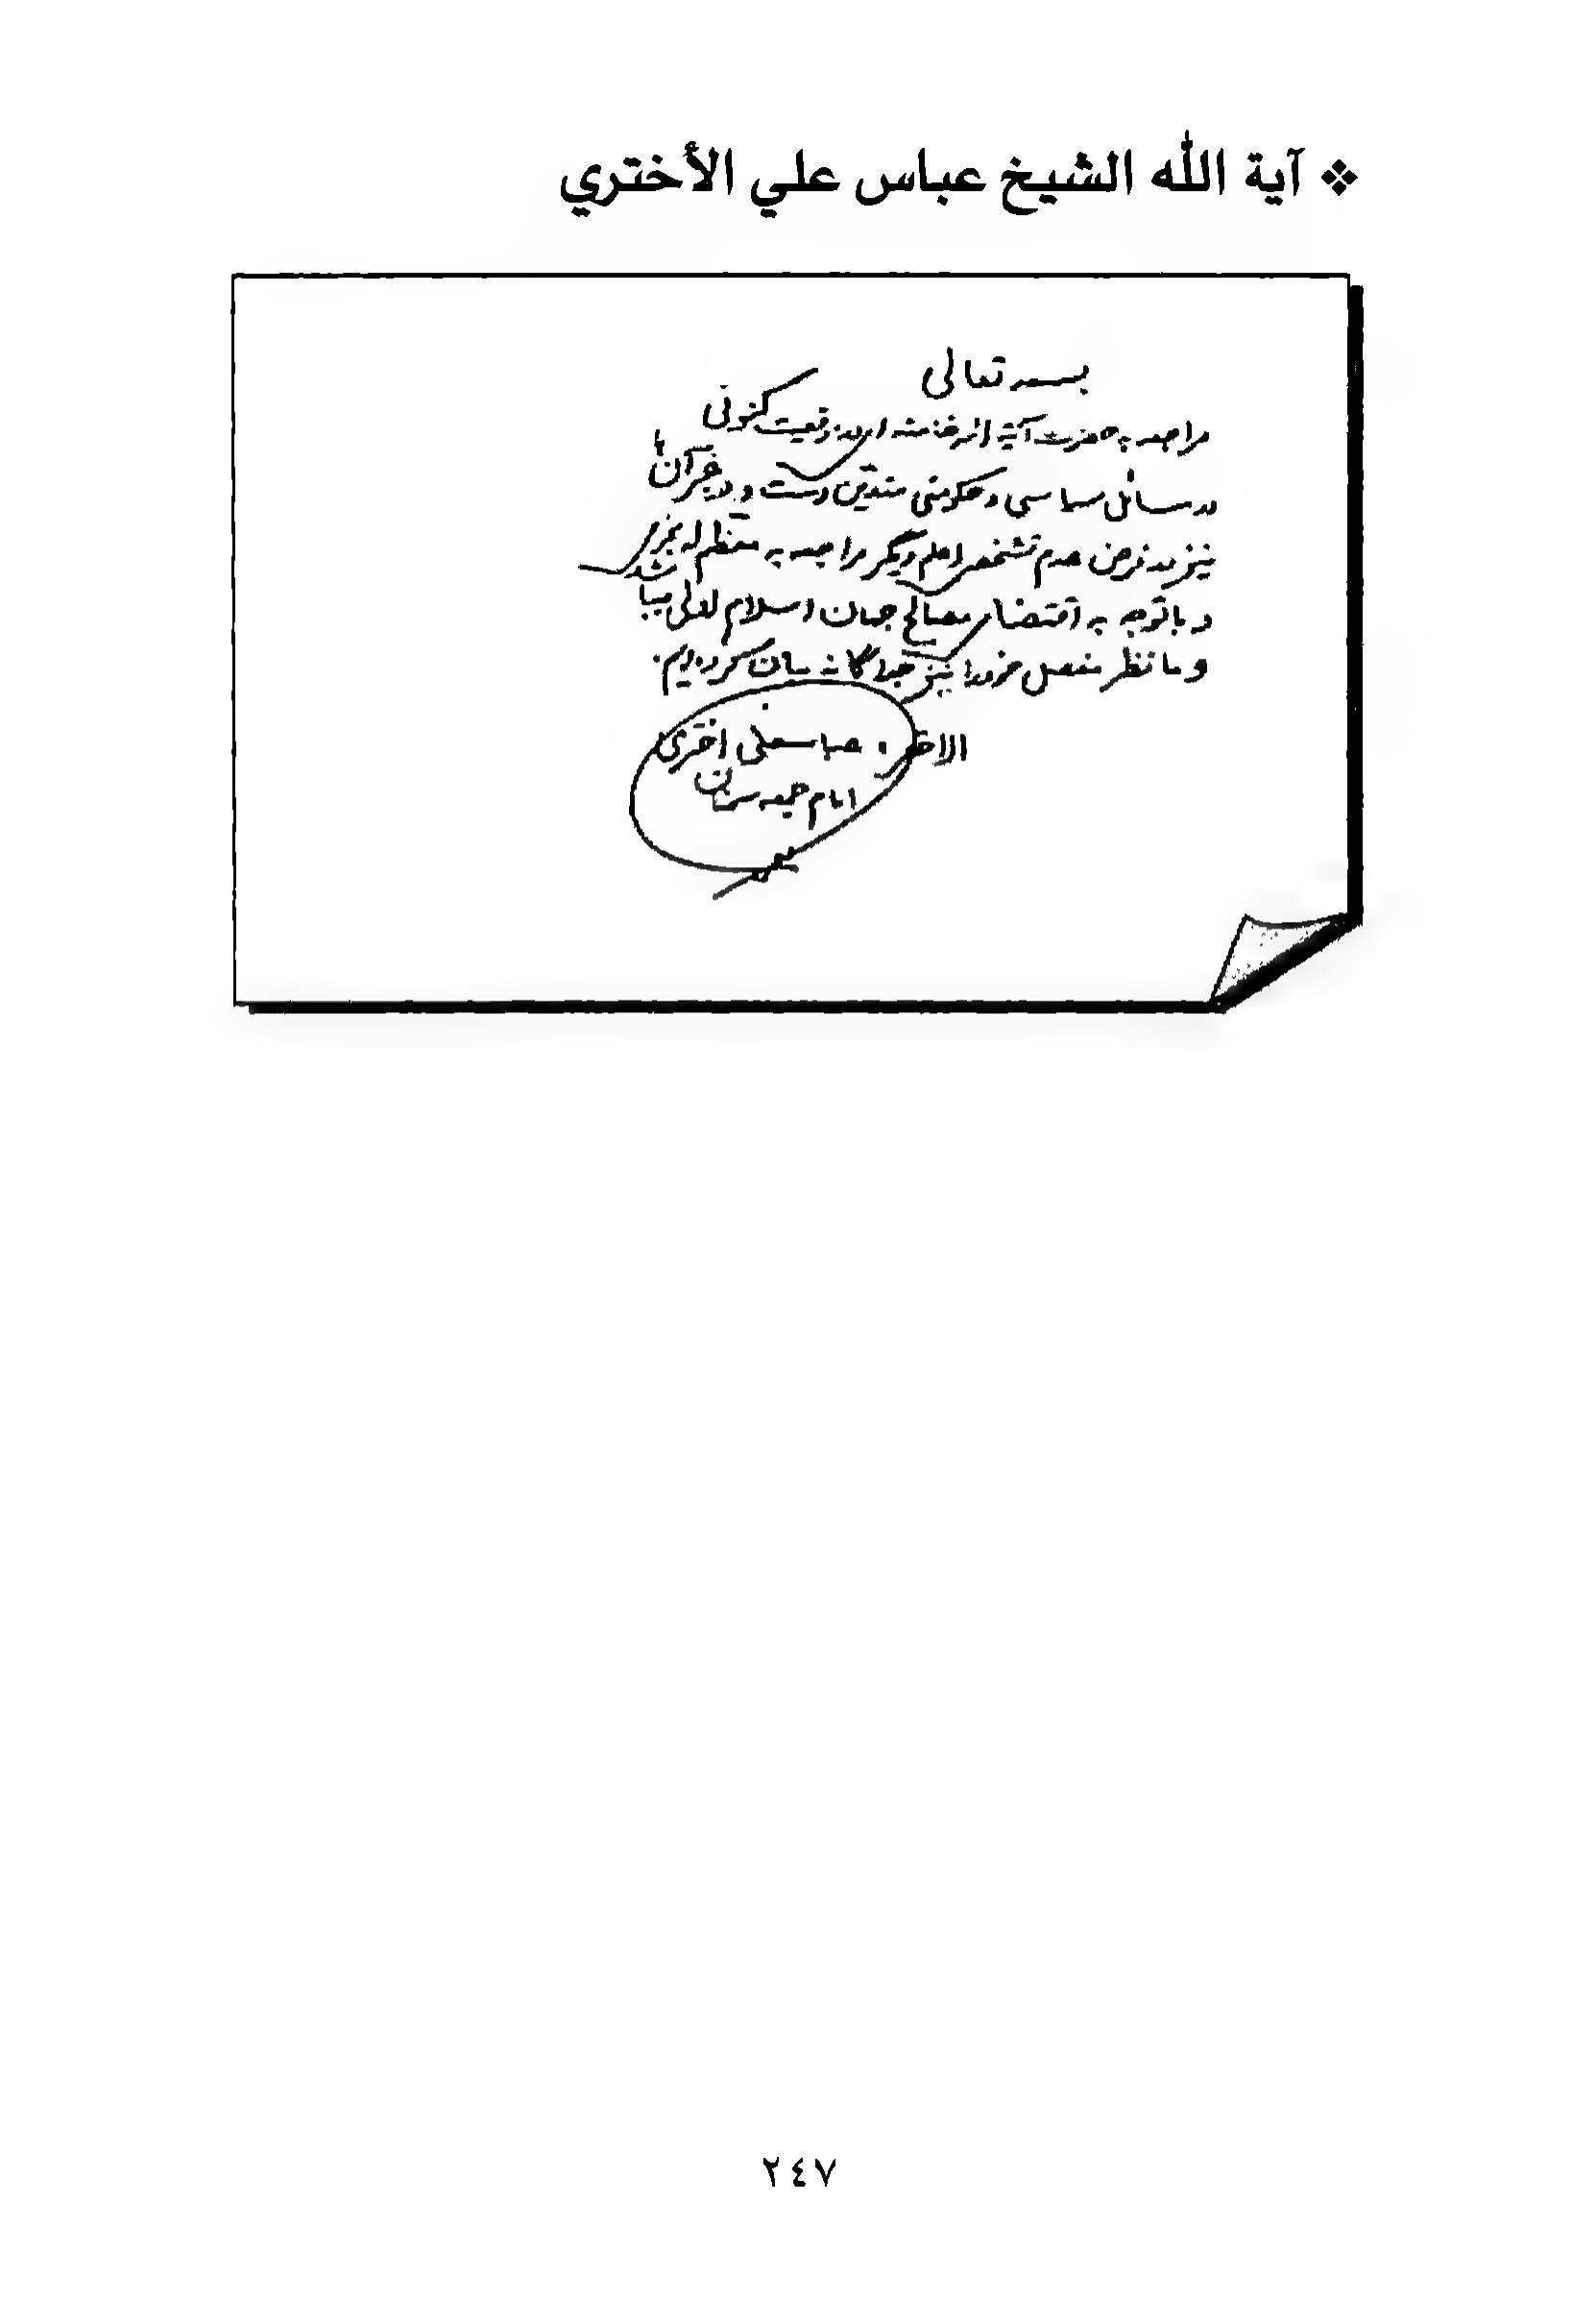 ❖ آية الله الشيخ عباس علي الأختري
بسمه تعالی
مراجعه به حضرت آیة الله خامنه ای در وقعیت کنونی
در مسائل سیاسی و حکومتی متعین است و در غیر آن
نیز در فرض عدم تشخص اعلم دیگر مراجعه به معظم له مجزی
و با توجه به اقتضاء مصالح جهان اسلام اولی میباشد
و ما نظر مفصل خود را نیز جداگانه بیان کرده ایم.
الاحقر عباسعلی اختری
امام جمعه سمنان
٢٤٧